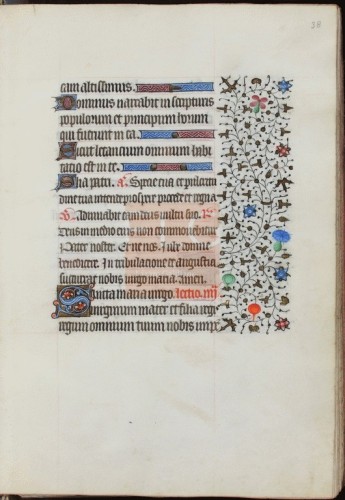 38
eam altissimus.
Dominus narrabit in scripturis
populorum et principum horum
qui fuerunt in ea.
Sicut letancium omnium habi
tatio est in te.
Gloria patri. a. Specie tua et pulcritu
dine tua intende prospere procede et regna
V. Adiuvabit eam deus vultu suo. R.
Deus in medio eius non commovebitur
Pater noster. Et ne nos. Iube domne
benedicere. In tribulacione et angustia
succurrat nobis virgo maria. amen.
Sancta maria virgo. Lectio
virginum mater et filia regis
regum omnium tuum nobis impe